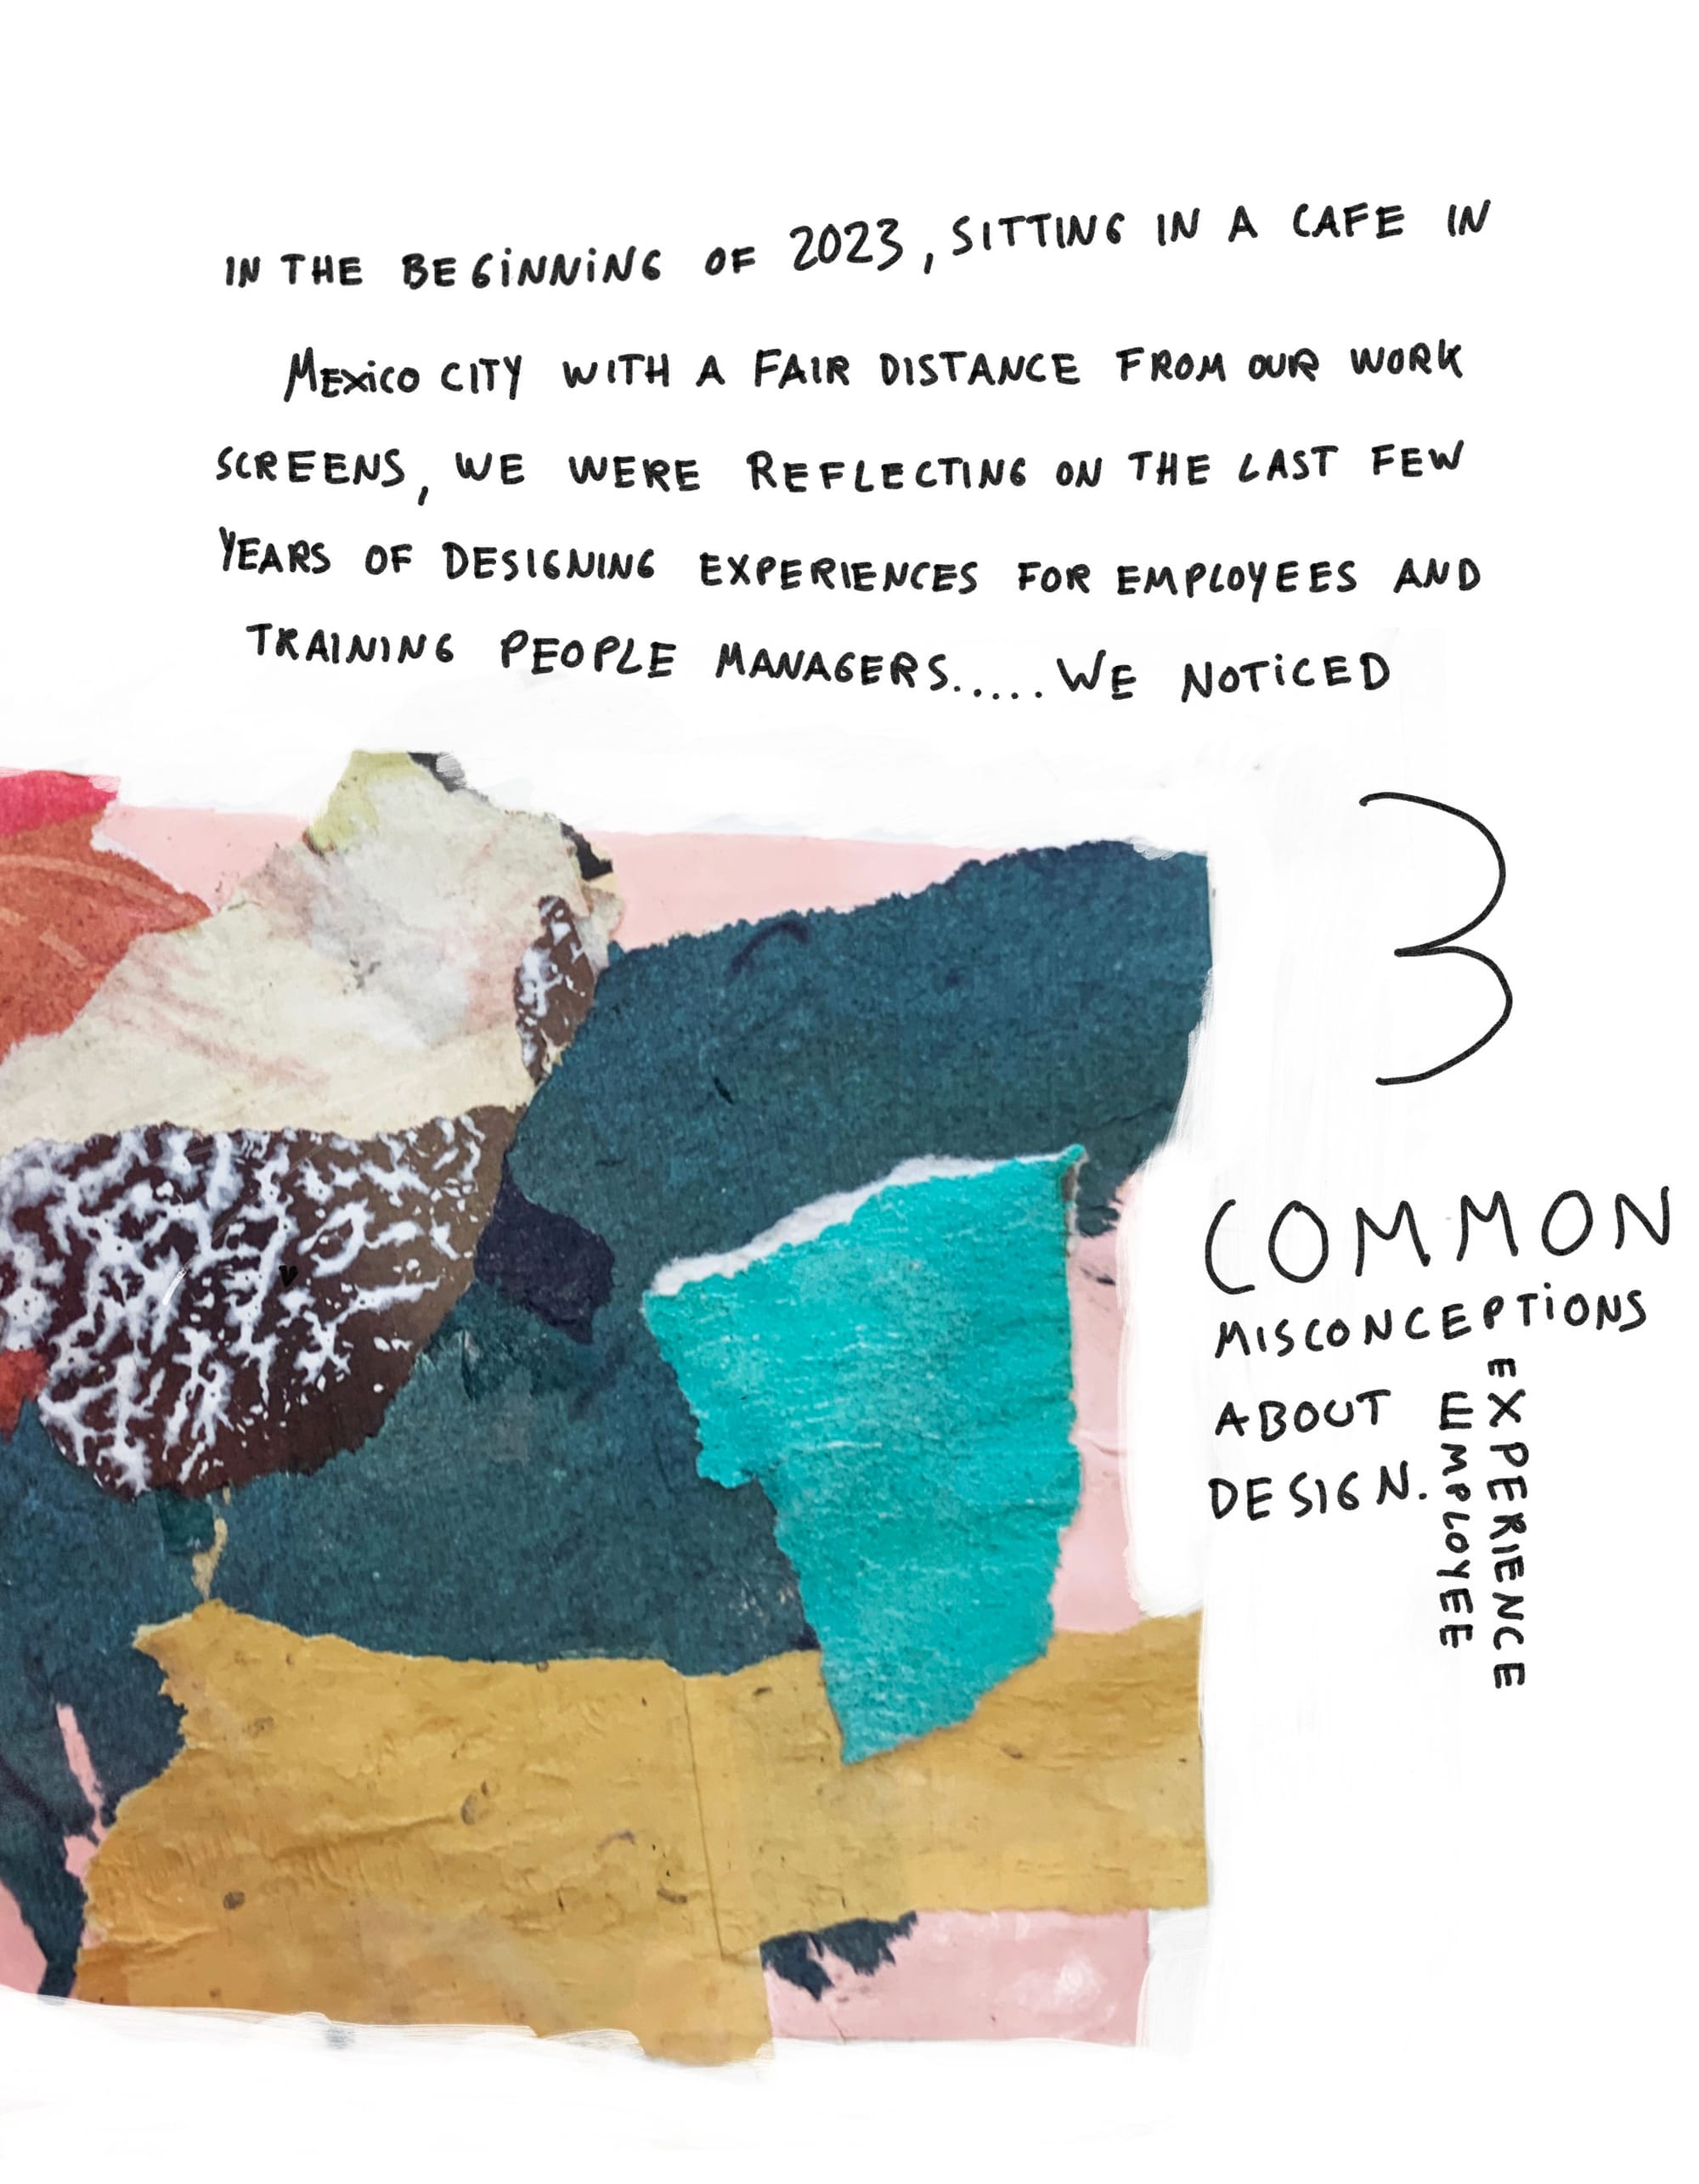 IN THE BEGINNING OF 2023, SITTING IN A CAFE IN
MEXICO CITY WITH A FAIR DISTANCE FROM OUR WORK
SCREENS, WE WERE REFLECTING ON THE LAST FEW
YEARS OF DESIGNING EXPERIENCES FOR EMPLOYEES AND
TRAINING PEOPLE MANAGERS..... WE NOTICED
3
COMMON
MISCONCEPTIONS
ABOUT
EMPLOYEE
EXPERIENCE
DESIGN.